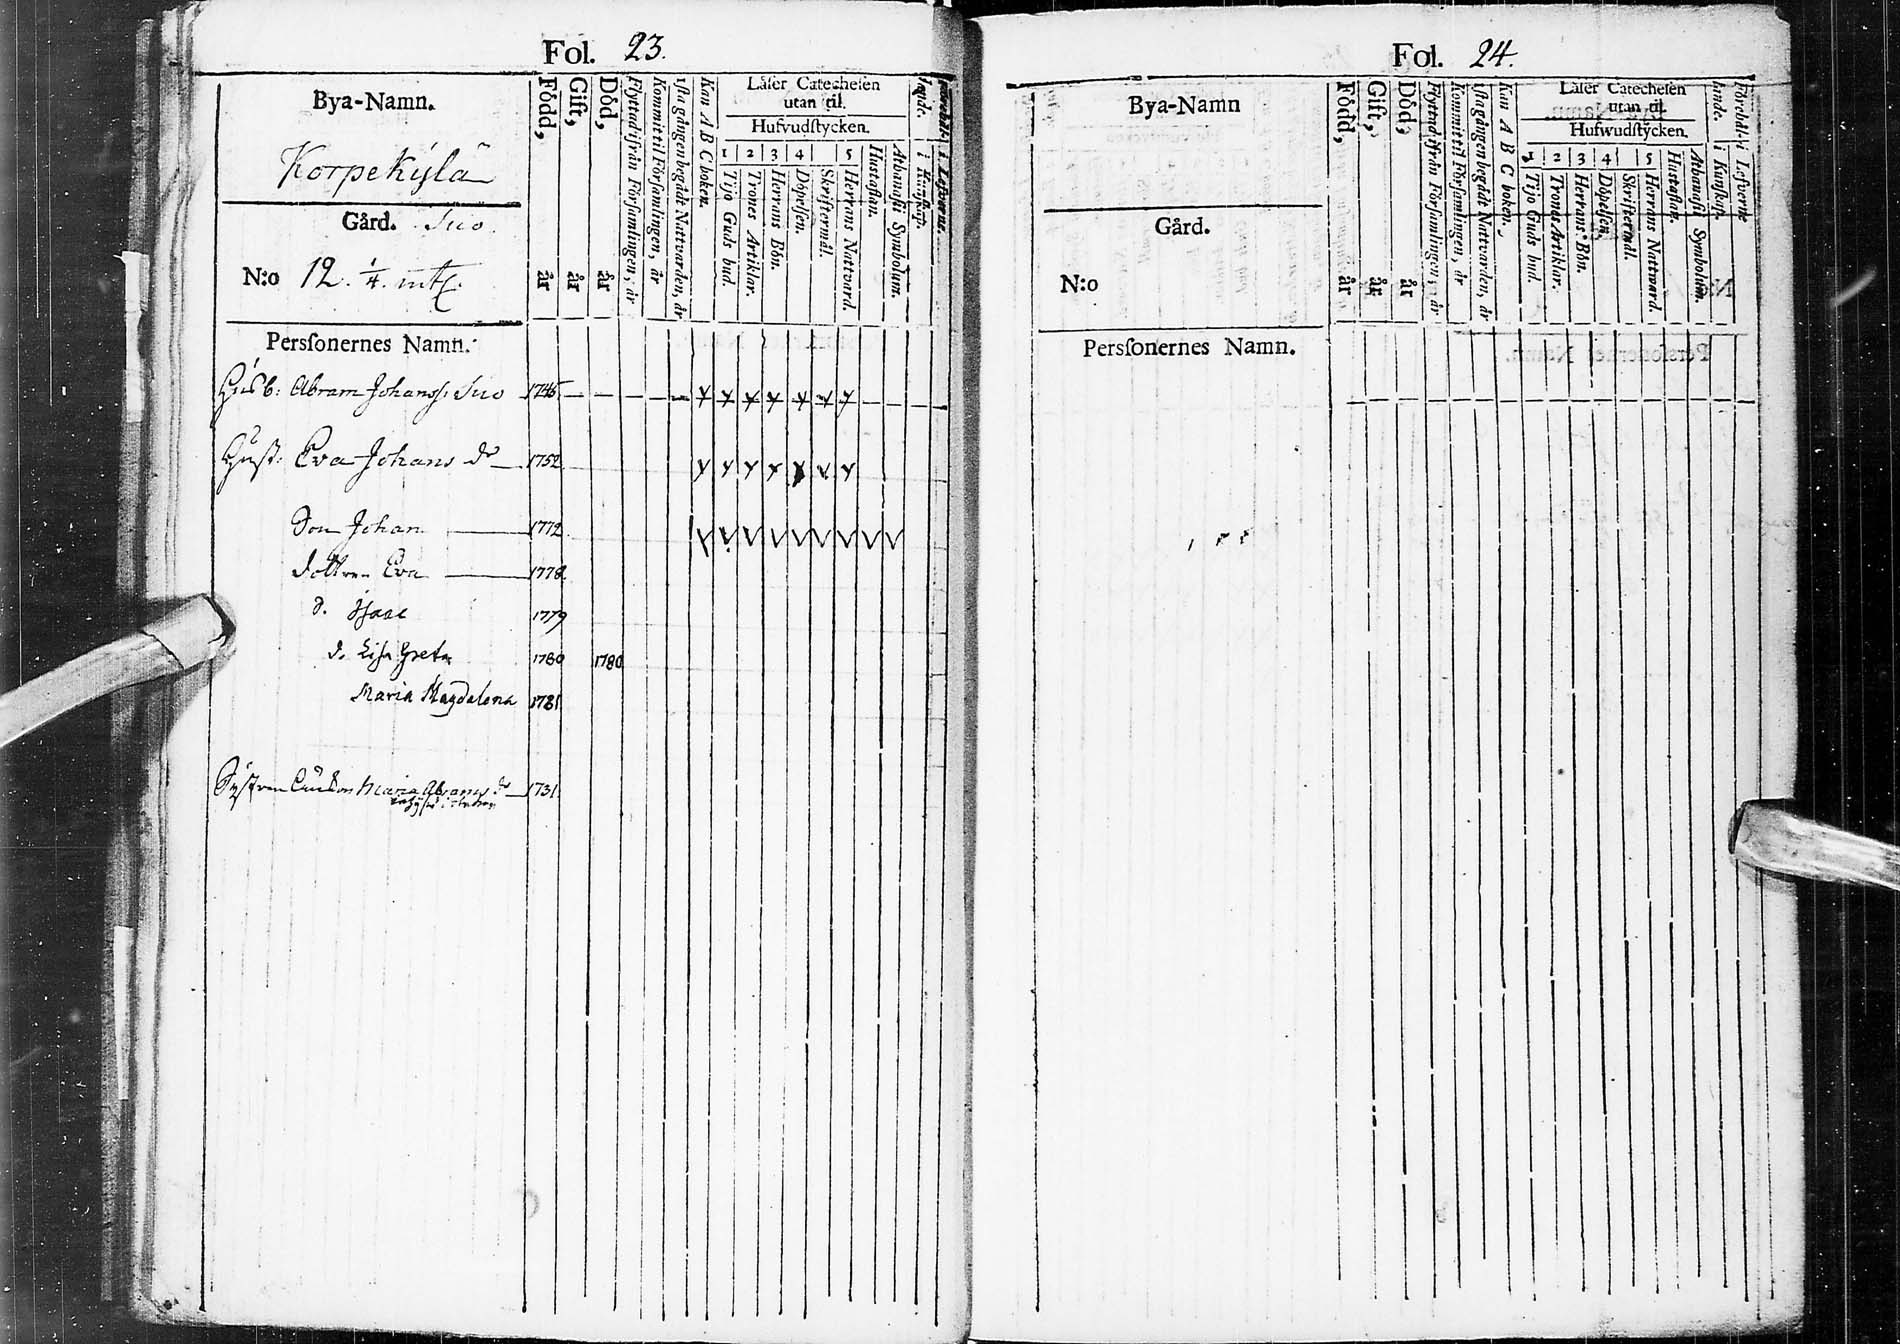 Fol. 23.
Bya-Namn.
Korpekylä
Gård. Suo
N:o 12. 1/4. mtl.
Perſonernes Namn.
Född, år
Gift, år
Död, år
Flyttad ifrån Förſamlingen, år
Kommit til Förſamlingen, år
1ſta gången begådt Nattvarden, år
Kan A B C boken.
Låſer Catecheſen
utan til.
Hufvudſtycken.
1 2 3 4 5
Tijo Guds bud.
Trones Artiklar.
Herrans Bön.
Döpelſen.
Skriftermål.
Herrans Nattvard.
Huſtaflan.
Athanaſii Symbolum.
i Kunſkap.
i Lefverne.
Husb: Abram Johansſ: Suo 1745
Huſt: Eva Johans dr 1752
Son Johan 1772
dottren Eva 1778
d. Iſaac 1779
d. Liſa Greta 1780 1780
Maria Magdalena 1781
Syſtren Enckan Maria Abrams dr 1731
Fol. 24.
Bya-Namn
Gård.
N:o
Perſonernes Namn.
Född, år
Gift, år
Död, år
Flyttad ifrån Förſamlingen, år
Kommit til Förſamlingen, år
1ſta gången begådt Nattvarden, år
Kan A B C boken.
Låſer Catecheſen
utan til.
Hufwudſtycken.
1 2 3 4 5
Tijo Guds bud.
Trones Artiklar.
Herrans Bön.
Döpelſen.
Skriftermål.
Herrans Nattvard.
Huſtaflan.
Athanaſii Symbolum.
Förehållande.
i Kunſkap.
i Lefverne